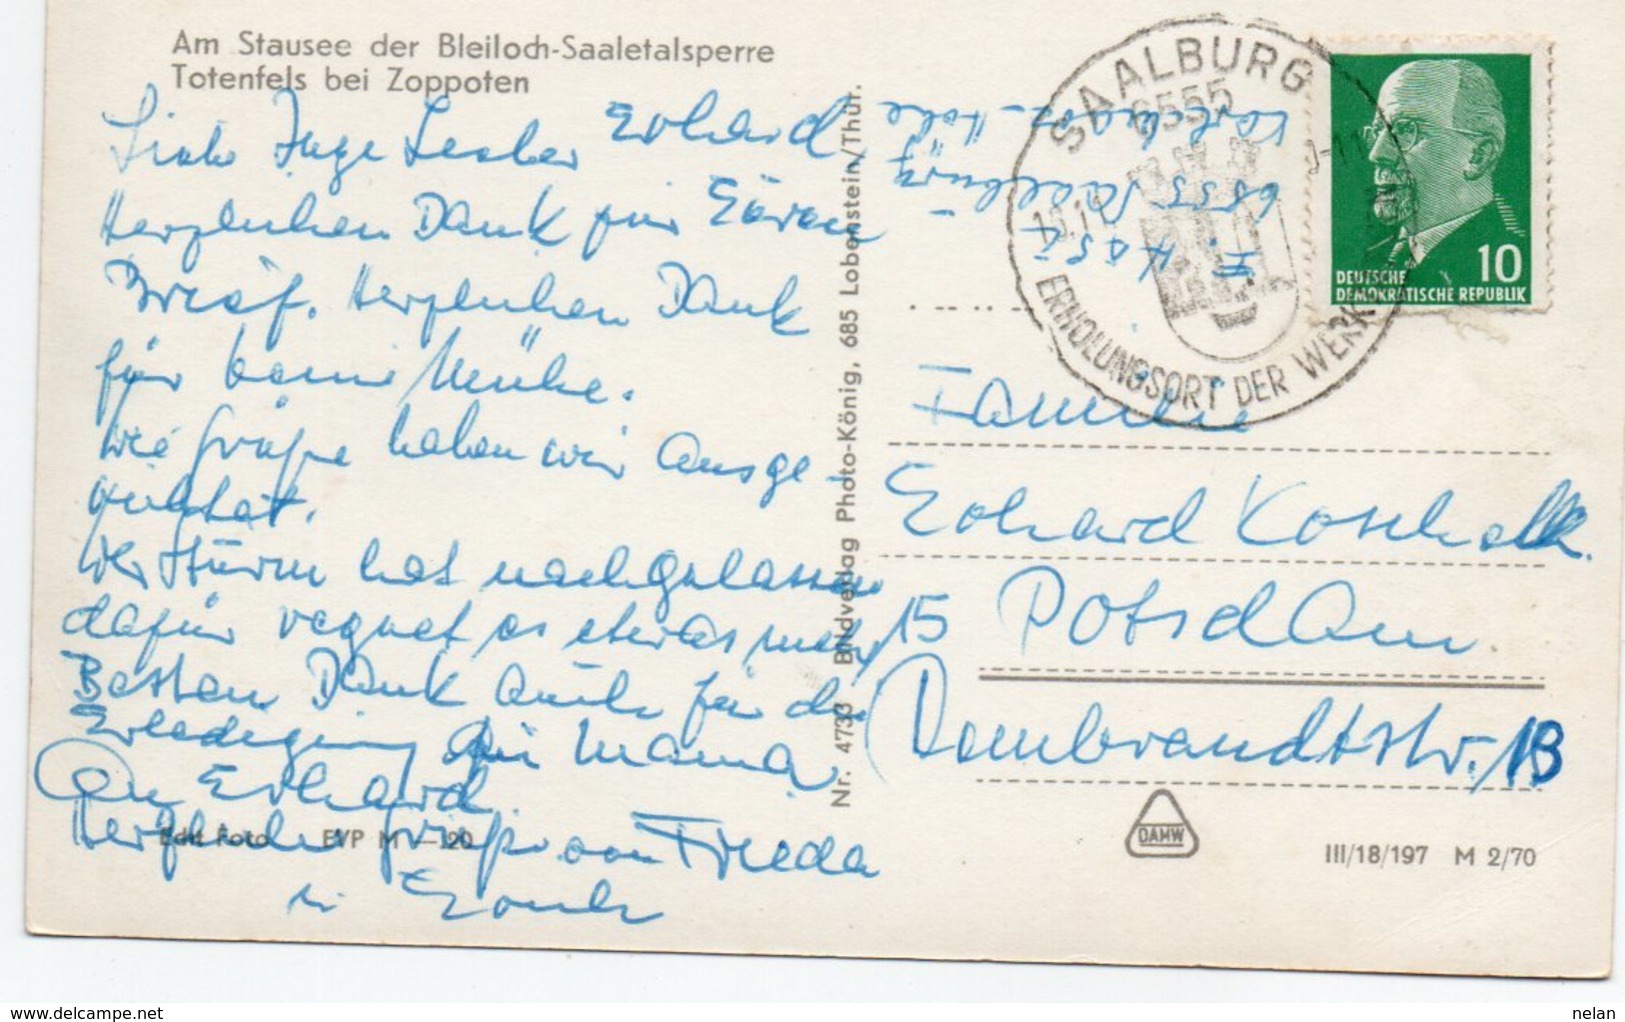 Am Stausee der Bleiloch-Saaletalsperre
Totenfels bei Zoppoten
Liebe Inge Lieber Erhard
Herzlichen Dank für Euren
Brief. Herzlichen Dank
für Deine Mühe.
Die Grüße haben wir ausge-
richtet.
Der Sturm hat nachgelassen
dafür regnet es etwas mehr
Besten Dank auch für die
Erledigung für Mama
an Erhard.
Herzliche Grüße von Frieda
Edit Foto EVP M -.20
Nr. 4733 Bildverlag Photo-König, 685 Lobenstein/Thür.
6555 Saalburg
SAALBURG
6555
ERHOLUNGSORT DER WERK
10
DEUTSCHE
DEMOKRATISCHE REPUBLIK
Familie
Erhard Koschalk
15 Potsdam
Rembrandtstr. 13
DAMW
III/18/197 M 2/70
www.delcampe.net
nelan